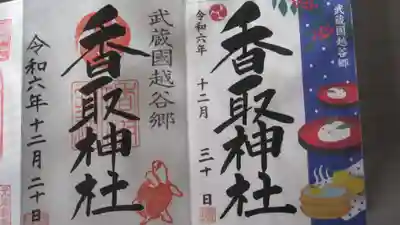 武蔵國越谷郷
香取神社
令和六年
十二月三十日
武蔵國越谷郷
香取神社
令和六年十二月二十日